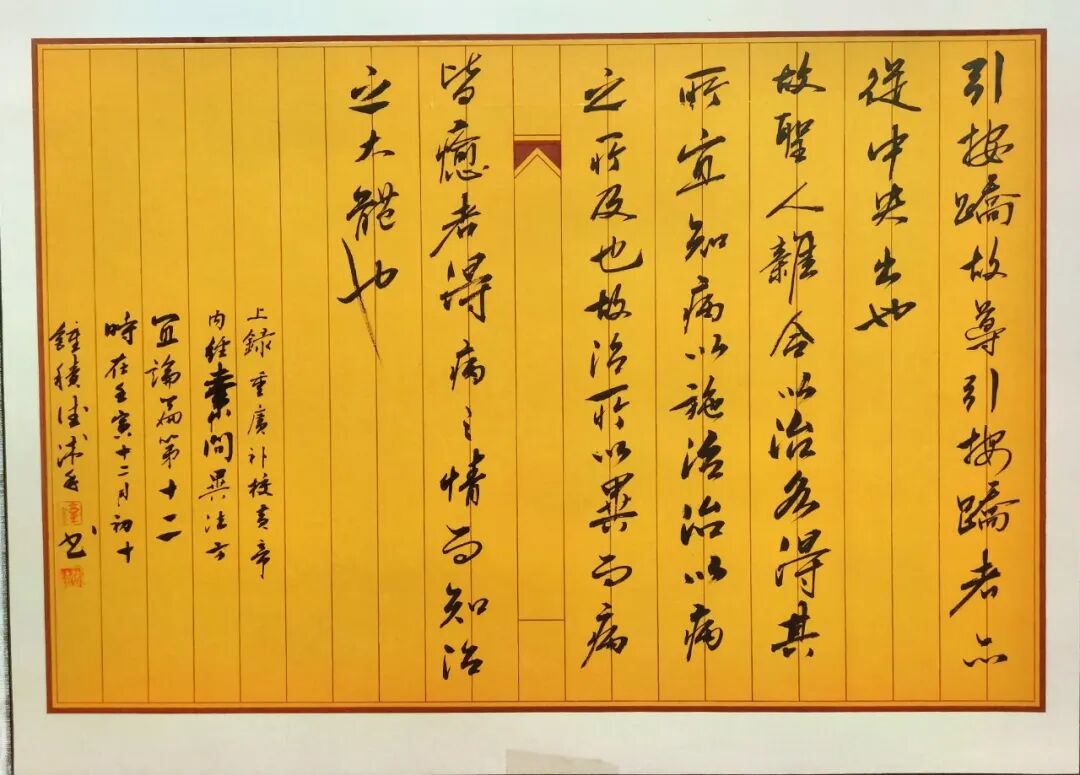 引按蹻故導引按蹻者亦
從中央出也
故聖人雜合以治各得其
所宜知病以施治治以病
之所及也故治所以異而病
皆癒者得病之情而知治
之大體也
上錄重廣補校黃帝
內經素問異法方
宜論篇第十二
時在壬寅十二月初十
鍾積德 書